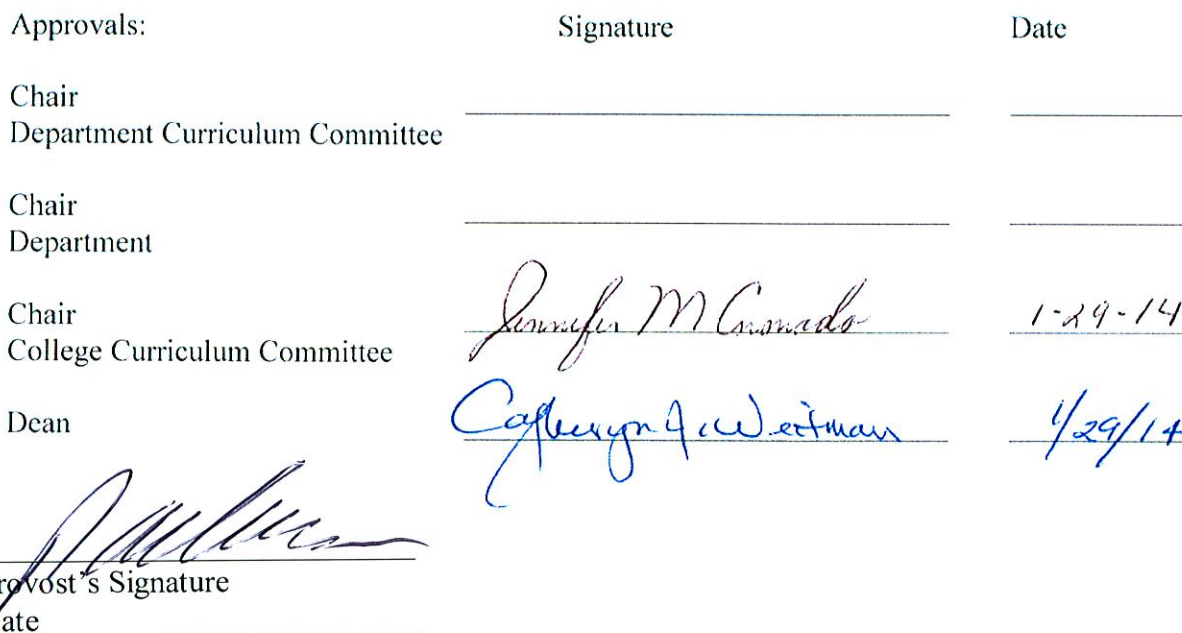 Approvals: Signature Date
Chair
Department Curriculum Committee
Chair
Department
Chair
College Curriculum Committee Jennifer M Coronado 1-29-14
Dean Weitman 1/29/14
rovost's Signature
ate